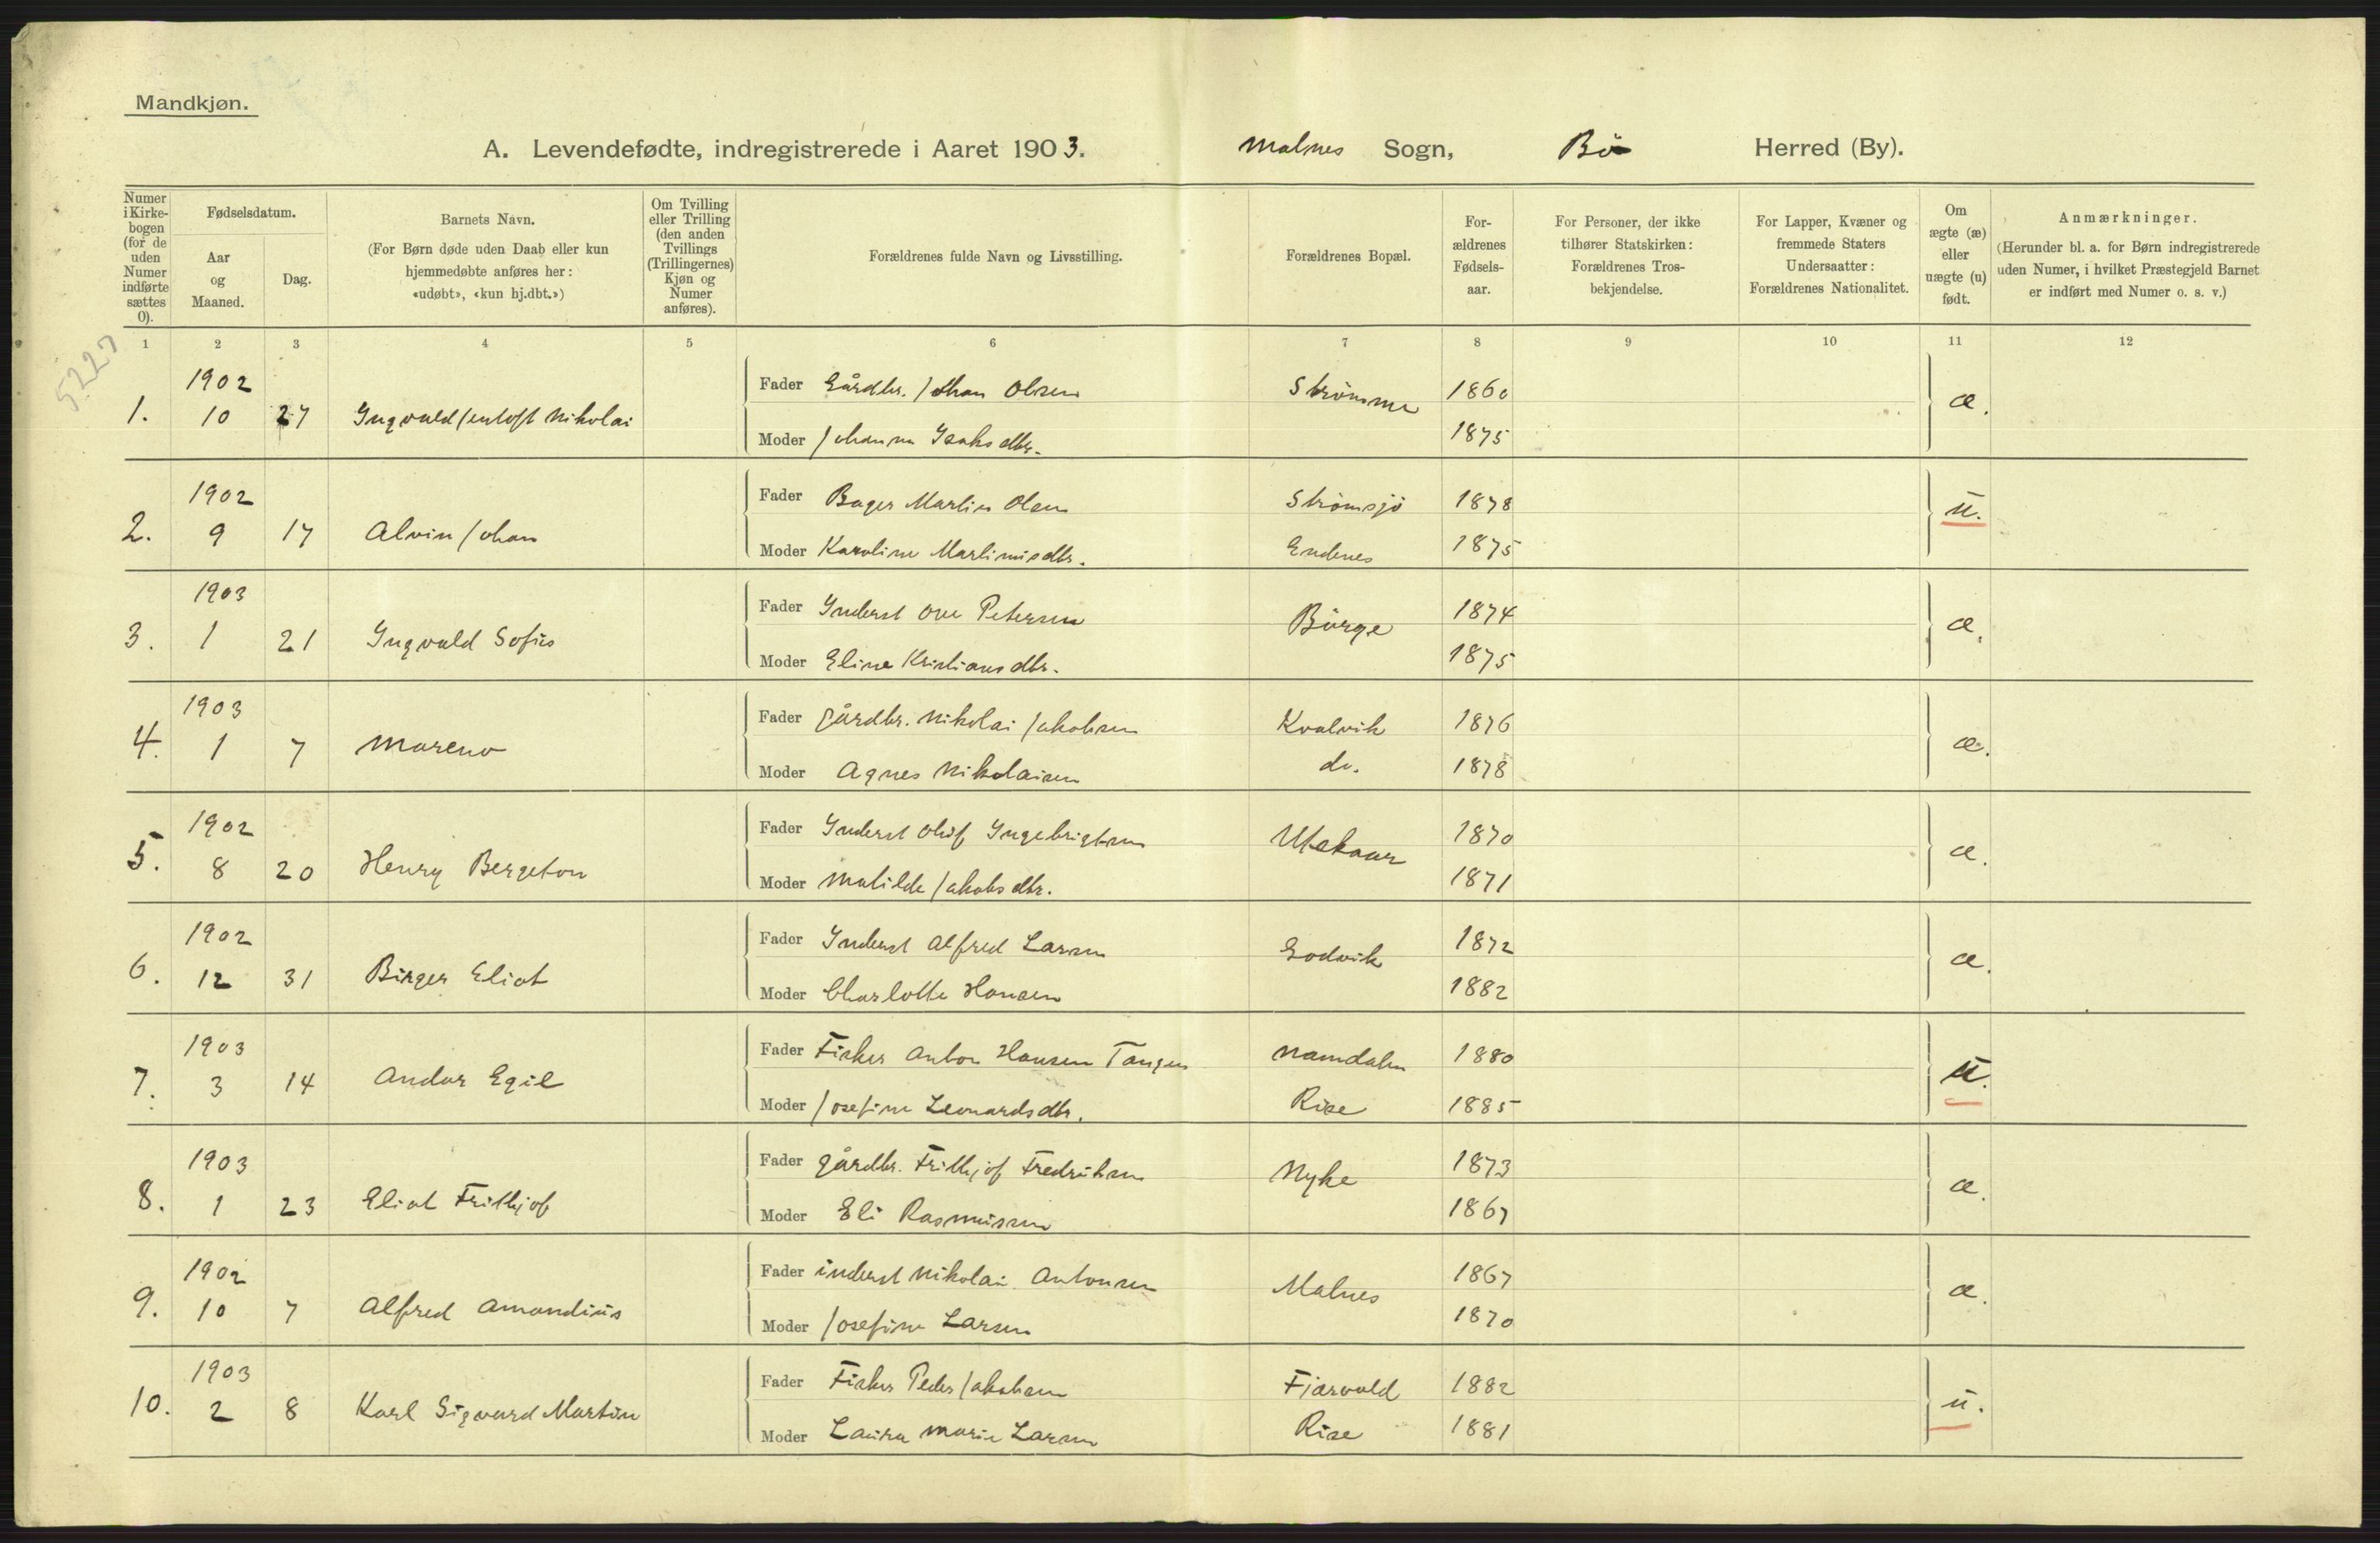 Mandkjøn.
A. Levendefødte, indregistrerede i Aaret 1903. Malnes Sogn, Bö Herred (By).
Numer i Kirkebogen (for de uden Numer indførte sættes 0).
Fødselsdatum.
Aar og Maaned.
Dag.
Barnets Navn.
(For Børn døde uden Daab eller kun hjemmedøbte anføres her: «udøbt», «kun hj.dbt.»)
Om Tvilling eller Trilling (den anden Tvillings (Trillingernes) Kjøn og Numer anføres).
Forældrenes fulde Navn og Livsstilling.
Forældrenes Bopæl.
Forældrenes Fødselsaar.
For Personer, der ikke tilhører Statskirken: Forældrenes Trosbekjendelse.
For Lapper, Kvæner og fremmede Staters Undersaatter: Forældrenes Nationalitet.
Om ægte (æ) eller uægte (u) født.
Anmærkninger.
(Herunder bl. a. for Børn indregistrerede uden Numer, i hvilket Præstegjeld Barnet er indført med Numer o. s. v.)
1 2 3 4 5 6 7 8 9 10 11 12
5227
1902
Fader Gårdbr. Johan Olsen Strömme 1860
1. 10 27 Ingvald Jentoft Nikolai æ.
Moder Johanna Isaksdtr. 1875
1902
Fader Bager Martin Olsen Strömsjö 1878
2. 9 17 Alvin Johan u.
Moder Karoline Martinusdtr. Endenes 1875
1903
Fader Inderst Ove Petersen Börge 1874
3. 1 21 Ingvald Sofus æ.
Moder Eline Kristiansdtr. 1875
1903
Fader gårdbr. Nikolai Jakobsen Kvalvik 1876
4. 1 7 Mareno æ.
Moder Agnes Nikolaisen do. 1878
1902
Fader Inderst Oluf Ingebrigtsen Utskaar 1870
5. 8 20 Henry Bergeton æ.
Moder Matilde Jakobsdtr. 1871
1902
Fader Inderst Alfred Larsen Godvik 1872
6. 12 31 Birger Eliot æ.
Moder Charlotte Hansen 1882
1903
Fader Fisker Anton Hansen Tangen Namdalen 1880
7. 3 14 Andor Egil u.
Moder Josefine Leonardsdtr. Rise 1885
1903
Fader gårdbr. Frithjof Fredriksen Nyke 1873
8. 1 23 Eliot Frithjof æ.
Moder Eli Rasmussen 1867
1902
Fader inderst Nikolai Antonsen Malnes 1867
9. 10 7 Alfred Amandius æ.
Moder Josefine Larsen 1870
1903
Fader Fisker Peder Jakobsen Fjærvold 1882
10. 2 8 Karl Sigvard Martin u.
Moder Laura Marie Larsen Rise 1881